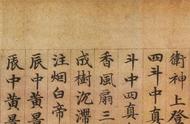 衛神上登
四斗中真
斗中四真
香風扇三
成樹沉滯
注烟白帝
辰中黃景
辰中黃景